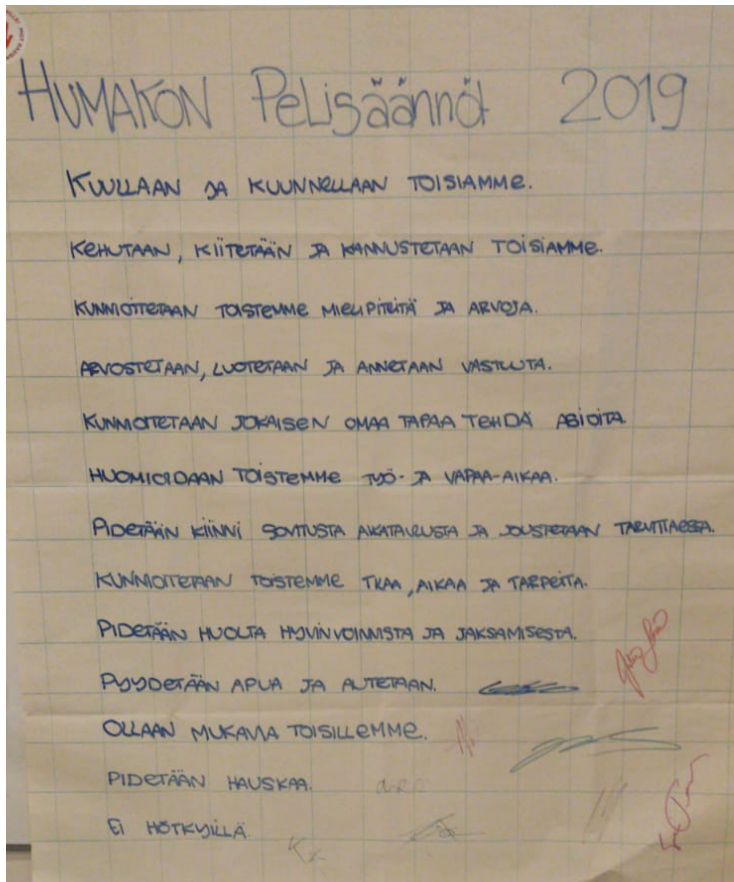 HUMAKON PELISÄÄNNÖT 2019
KUULLAAN JA KUUNNELLAAN TOISIAMME.
KEHUTAAN, KIITETÄÄN JA KANNUSTETAAN TOISIAMME.
KUNNIOITETAAN TOISTEMME MIELIPITEITÄ JA ARVOJA.
ARVOSTETAAN, LUOTETAAN JA ANNETAAN VASTUUTA.
KUNNIOITETAAN JOKAISEN OMAA TAPAA TEHDÄ ASIOITA.
HUOMIOIDAAN TOISTEMME TYÖ- JA VAPAA-AIKAA.
PIDETÄÄN KIINNI SOVITUSTA AIKATAULUSTA JA JOUSTETAAN TARVITTAESSA.
KUNNIOITETAAN TOISTEMME TILAA, AIKAA JA TARPEITA.
PIDETÄÄN HUOLTA HYVINVOINNISTA JA JAKSAMISESTA.
PYYDETÄÄN APUA JA AUTETAAN.
OLLAAN MUKAVIA TOISILLEMME.
PIDETÄÄN HAUSKAA.
EI HÖTKYILLÄ